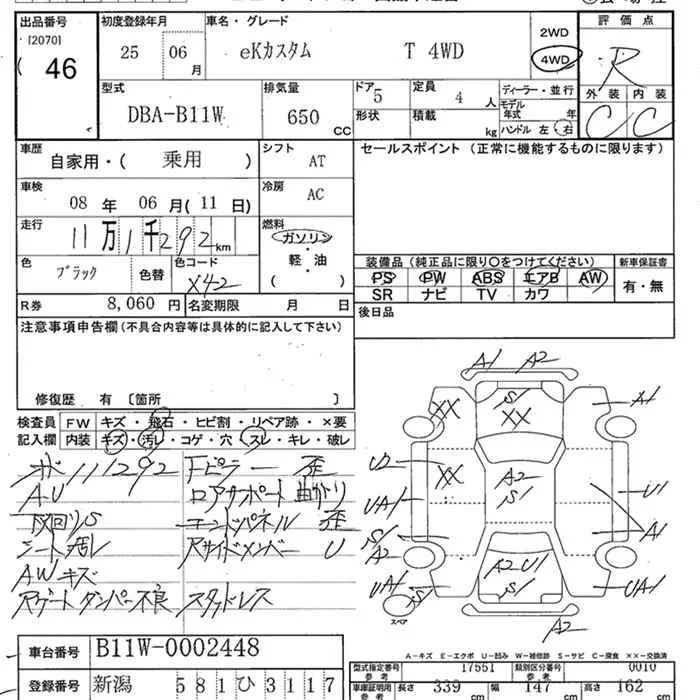 出品番号
[2070]
46
初度登録年月
25 06
月
車名・グレード
eKカスタム T 4WD
2WD
4WD
評価点
R
外装 内装
C C
型式
DBA-B11W
排気量
650
CC
ドア
5
定員
4
人
形状
積載
kg
ディーラー・並行
モデル
年式 年
ハンドル 左・右
車歴
自家用・( 乗用 )
シフト
AT
セールスポイント(正常に機能するものに限ります)
車検
08 年 06 月(11 日)
冷房
AC
走行
11万1千292km
燃料
ガソリン
・
軽・油
( )
色
ブラック
色替
色コード
X42
R券
8,060 円
名変期限 月 日
装備品(純正品に限り○をつけてください)
新車保証書
PS PW ABS エアB AW
SR ナビ TV カワ
有・無
後日品
注意事項申告欄(不具合内容等は具体的に記入して下さい)
修復歴 有 〔箇所 〕
検査員
記入欄
FW キズ・飛石・ヒビ割・リペア跡・×要
内装 キズ・汚レ・コゲ・穴・スレ・キレ・破レ
111292 Fピラー 歪
A・U ロアサポート曲ガリ
下回リS エンドパネル 歪
シート汚レ RサイドメンバーU
AWキズ
Rゲートダンパー不良 スタッドレス
A1 A2
S1
XX XX
A1
U2
XX
A2
S1
UA1
U1
S1
A2
A1
A2 U1
S1
UA1
S1
UA1
スペア
A2
A-キズ E-エクボ U-凹み W-補修跡 S-サビ C-腐食 ××-交換済
車台番号
B11W-0002448
登録番号
新潟 581ひ3117
型式指定番号
参考
17551
類別区分番号
参考
0010
車庫証明用
参考
長さ
339
cm
幅
147
cm
高さ
162
cm